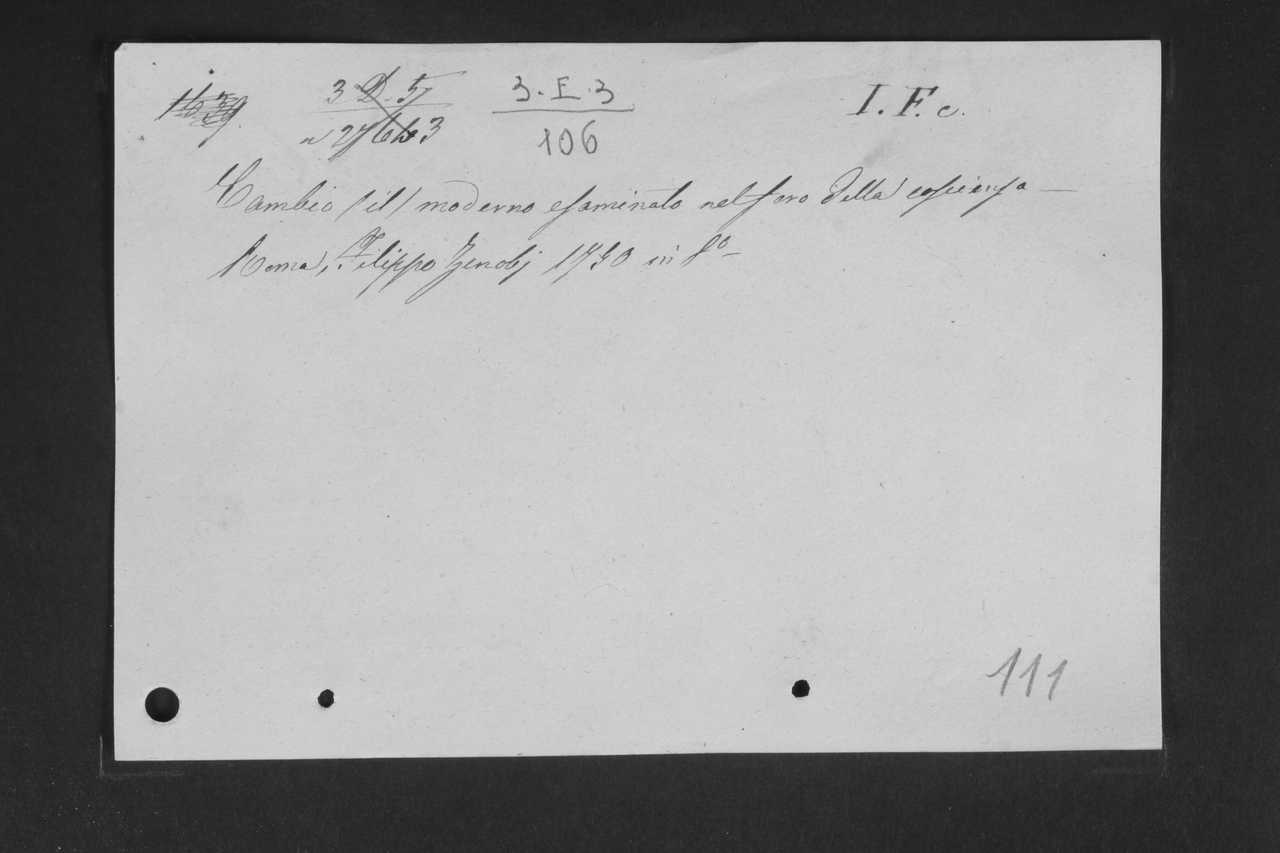 3 D. 5 3. E. 3 I. F. c.
n 27663 106
Cambio (il) moderno esaminato nel foro della coscienza —
Roma, Filippo Zenobj 1730 in 8º —
111